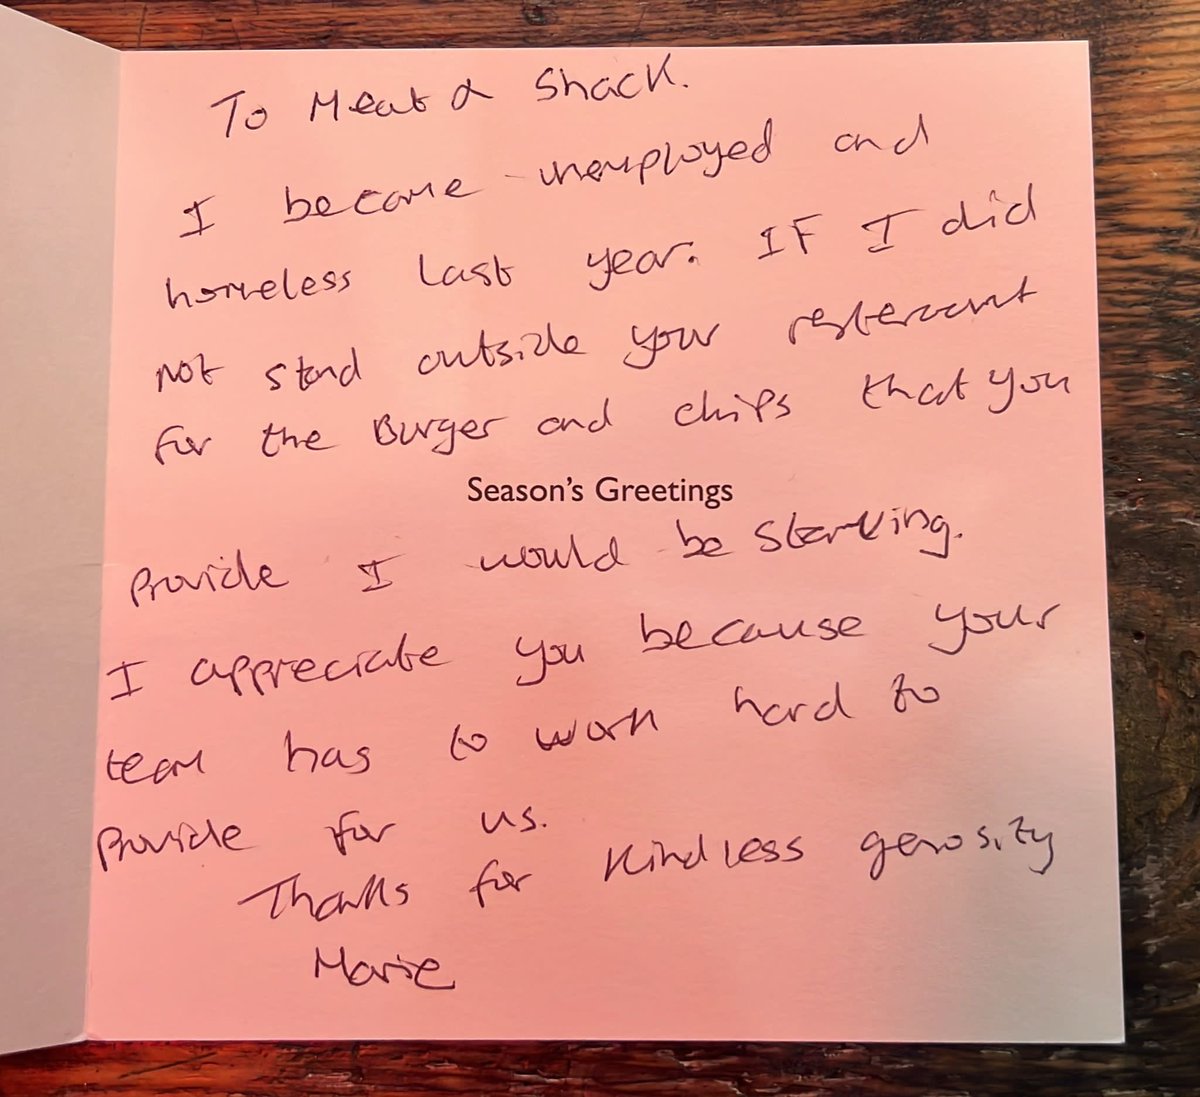 To Meat a Shack.
I became unemployed and
homeless last year. IF I did
not stand outside your resteraunt
for the Burger and chips that you
Season's Greetings
Provide I would be starving.
I appreciate you because your
team has to work hard to
Provide for us.
Thanks for Kindless generosity
Marie